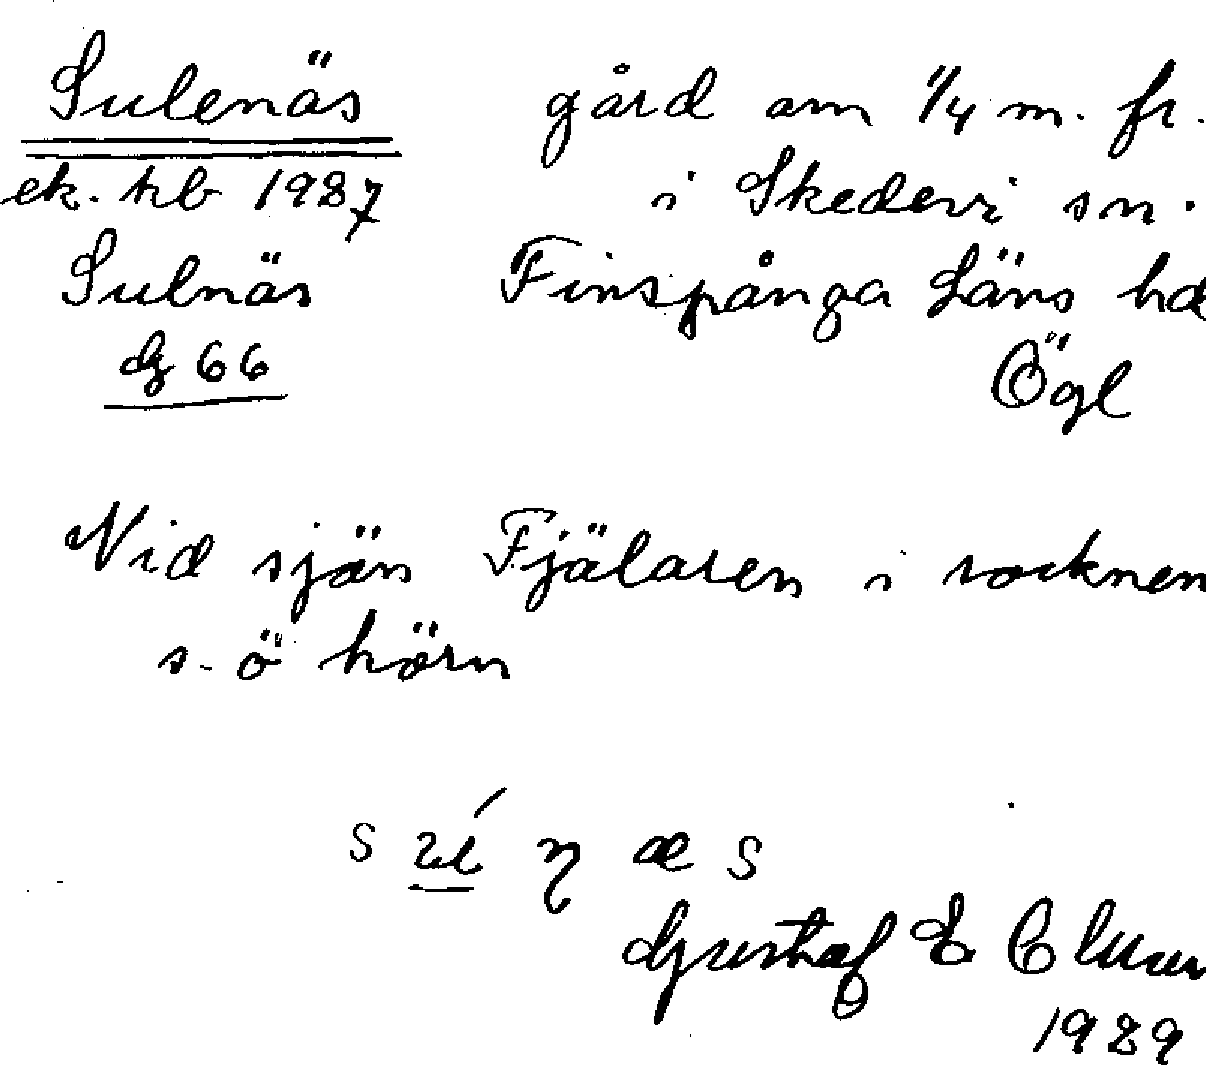 Sulenäs gård om 1/4 m. fr.
ek. kb 1927 i Skedevi sn.
Sulnäs Finspånga Läns hd
dg 66 Ögl
Vid sjön Fjälaren i socknen
s. ö hörn
Gustaf E
1929